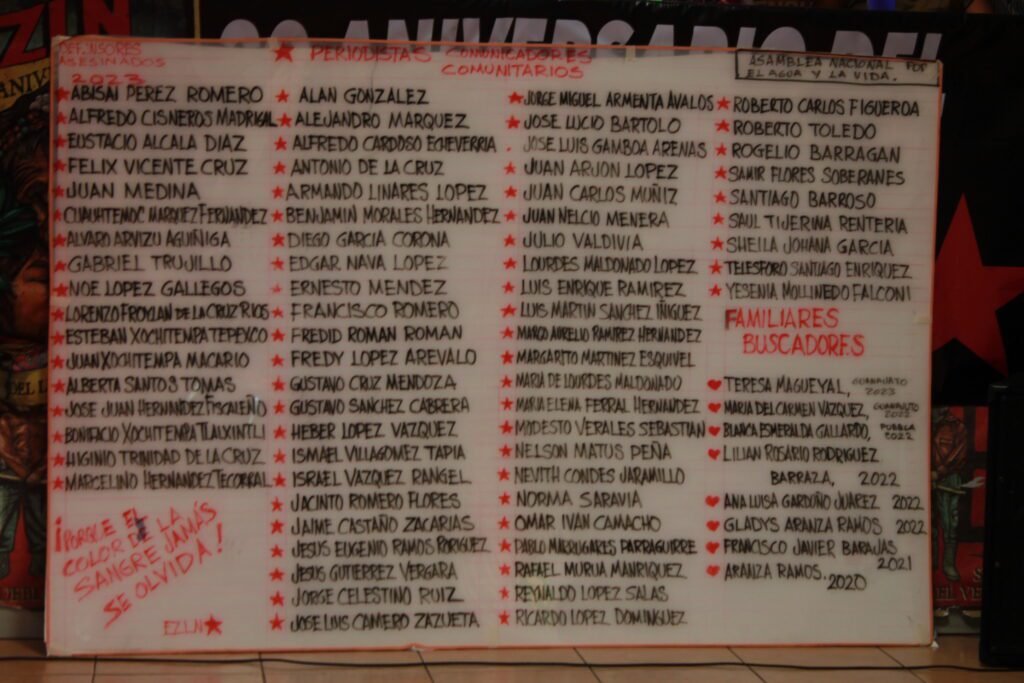 ANIVERSARIO DEL
DEFENSORES
ASESINADOS
2023
★ ABISAI PEREZ ROMERO
★ ALFREDO CISNEROS MADRIGAL
★ EUSTACIO ALCALA DIAZ
★ FELIX VICENTE CRUZ
★ JUAN MEDINA
★ CUAUHTEMOC MARQUEZ FERNANDEZ
★ ALVARO ARVIZU AGUIÑIGA
★ GABRIEL TRUJILLO
★ NOE LOPEZ GALLEGOS
★ LORENZO FROYLAN DE LA CRUZ RIOS
★ ESTEBAN XOCHITEMPA TEPEXCO
★ JUAN XOCHITEMPA MACARIO
★ ALBERTA SANTOS TOMAS
★ JOSE JUAN HERNANDEZ FISCALEÑO
★ BONIFACIO XOCHITEMPA TLALXINTLI
★ HIGINIO TRINIDAD DE LA CRUZ
★ MARCELINO HERNANDEZ TECORRAL
¡PORQUE EL
COLOR DE LA
SANGRE JAMÁS
SE OLVIDA!
EZLN★
★ PERIODISTAS COMUNICADORES
COMUNITARIOS
★ ALAN GONZALEZ
★ ALEJANDRO MARQUEZ
★ ALFREDO CARDOSO ECHEVERRIA
★ ANTONIO DE LA CRUZ
★ ARMANDO LINARES LOPEZ
★ BENJAMIN MORALES HERNANDEZ
★ DIEGO GARCIA CORONA
★ EDGAR NAVA LOPEZ
★ ERNESTO MENDEZ
★ FRANCISCO ROMERO
★ FREDID ROMAN ROMAN
★ FREDY LOPEZ AREVALO
★ GUSTAVO CRUZ MENDOZA
★ GUSTAVO SANCHEZ CABRERA
★ HEBER LOPEZ VAZQUEZ
★ ISMAEL VILLAGOMEZ TAPIA
★ ISRAEL VAZQUEZ RANGEL
★ JACINTO ROMERO FLORES
★ JAIME CASTAÑO ZACARIAS
★ JESUS EUGENIO RAMOS RORIGUEZ
★ JESUS GUTIERREZ VERGARA
★ JORGE CELESTINO RUIZ
★ JOSE LUIS CAMERO ZAZUETA
★ JORGE MIGUEL ARMENTA AVALOS
★ JOSE LUCIO BARTOLO
JOSE LUIS GAMBOA ARENAS
★ JUAN ARJON LOPEZ
★ JUAN CARLOS MUÑIZ
★ JUAN NELCIO MENERA
★ JULIO VALDIVIA
★ LOURDES MALDONADO LOPEZ
★ LUIS ENRIQUE RAMIREZ
★ LUIS MARTIN SANCHEZ IÑIGUEZ
★ MARCO AURELIO RAMIREZ HERNANDEZ
★ MARGARITO MARTINEZ ESQUIVEL
★ MARIA DE LOURDES MALDONADO
★ MARIA ELENA FERRAL HERNANDEZ
★ MODESTO VERALES SEBASTIAN
★ NELSON MATUS PEÑA
★ NEVITH CONDES JARAMILLO
★ NORMA SARAVIA
★ OMAR IVAN CAMACHO
★ PABLO MORRUGARES PARRAGUIRRE
★ RAFAEL MURUA MANRIQUEZ
★ REYNALDO LOPEZ SALAS
★ RICARDO LOPEZ DOMINGUEZ
ASAMBLEA NACIONAL POR
EL AGUA Y LA VIDA.
★ ROBERTO CARLOS FIGUEROA
★ ROBERTO TOLEDO
★ ROGELIO BARRAGAN
★ SAMIR FLORES SOBERANES
★ SANTIAGO BARROSO
★ SAUL TIJERINA RENTERIA
★ SHEILA JOHANA GARCIA
★ TELESFORO SANTIAGO ENRIQUEZ
★ YESENIA MOLLINEDO FALCONI
FAMILIARES
BUSCADORES
♥ TERESA MAGUEYAL, GUANAJUATO 2023
♥ MARIA DEL CARMEN VAZQUEZ, GUANAJUATO 2022
♥ BLANCA ESMERALDA GALLARDO, PUEBLA 2022
♥ LILIAN ROSARIO RODRIGUEZ
BARRAZA, 2022
♥ ANA LUISA GARDUÑO JUAREZ 2022
♥ GLADYS ARANZA RAMOS 2022
♥ FRANCISCO JAVIER BARAJAS 2021
♥ ARANZA RAMOS. 2020